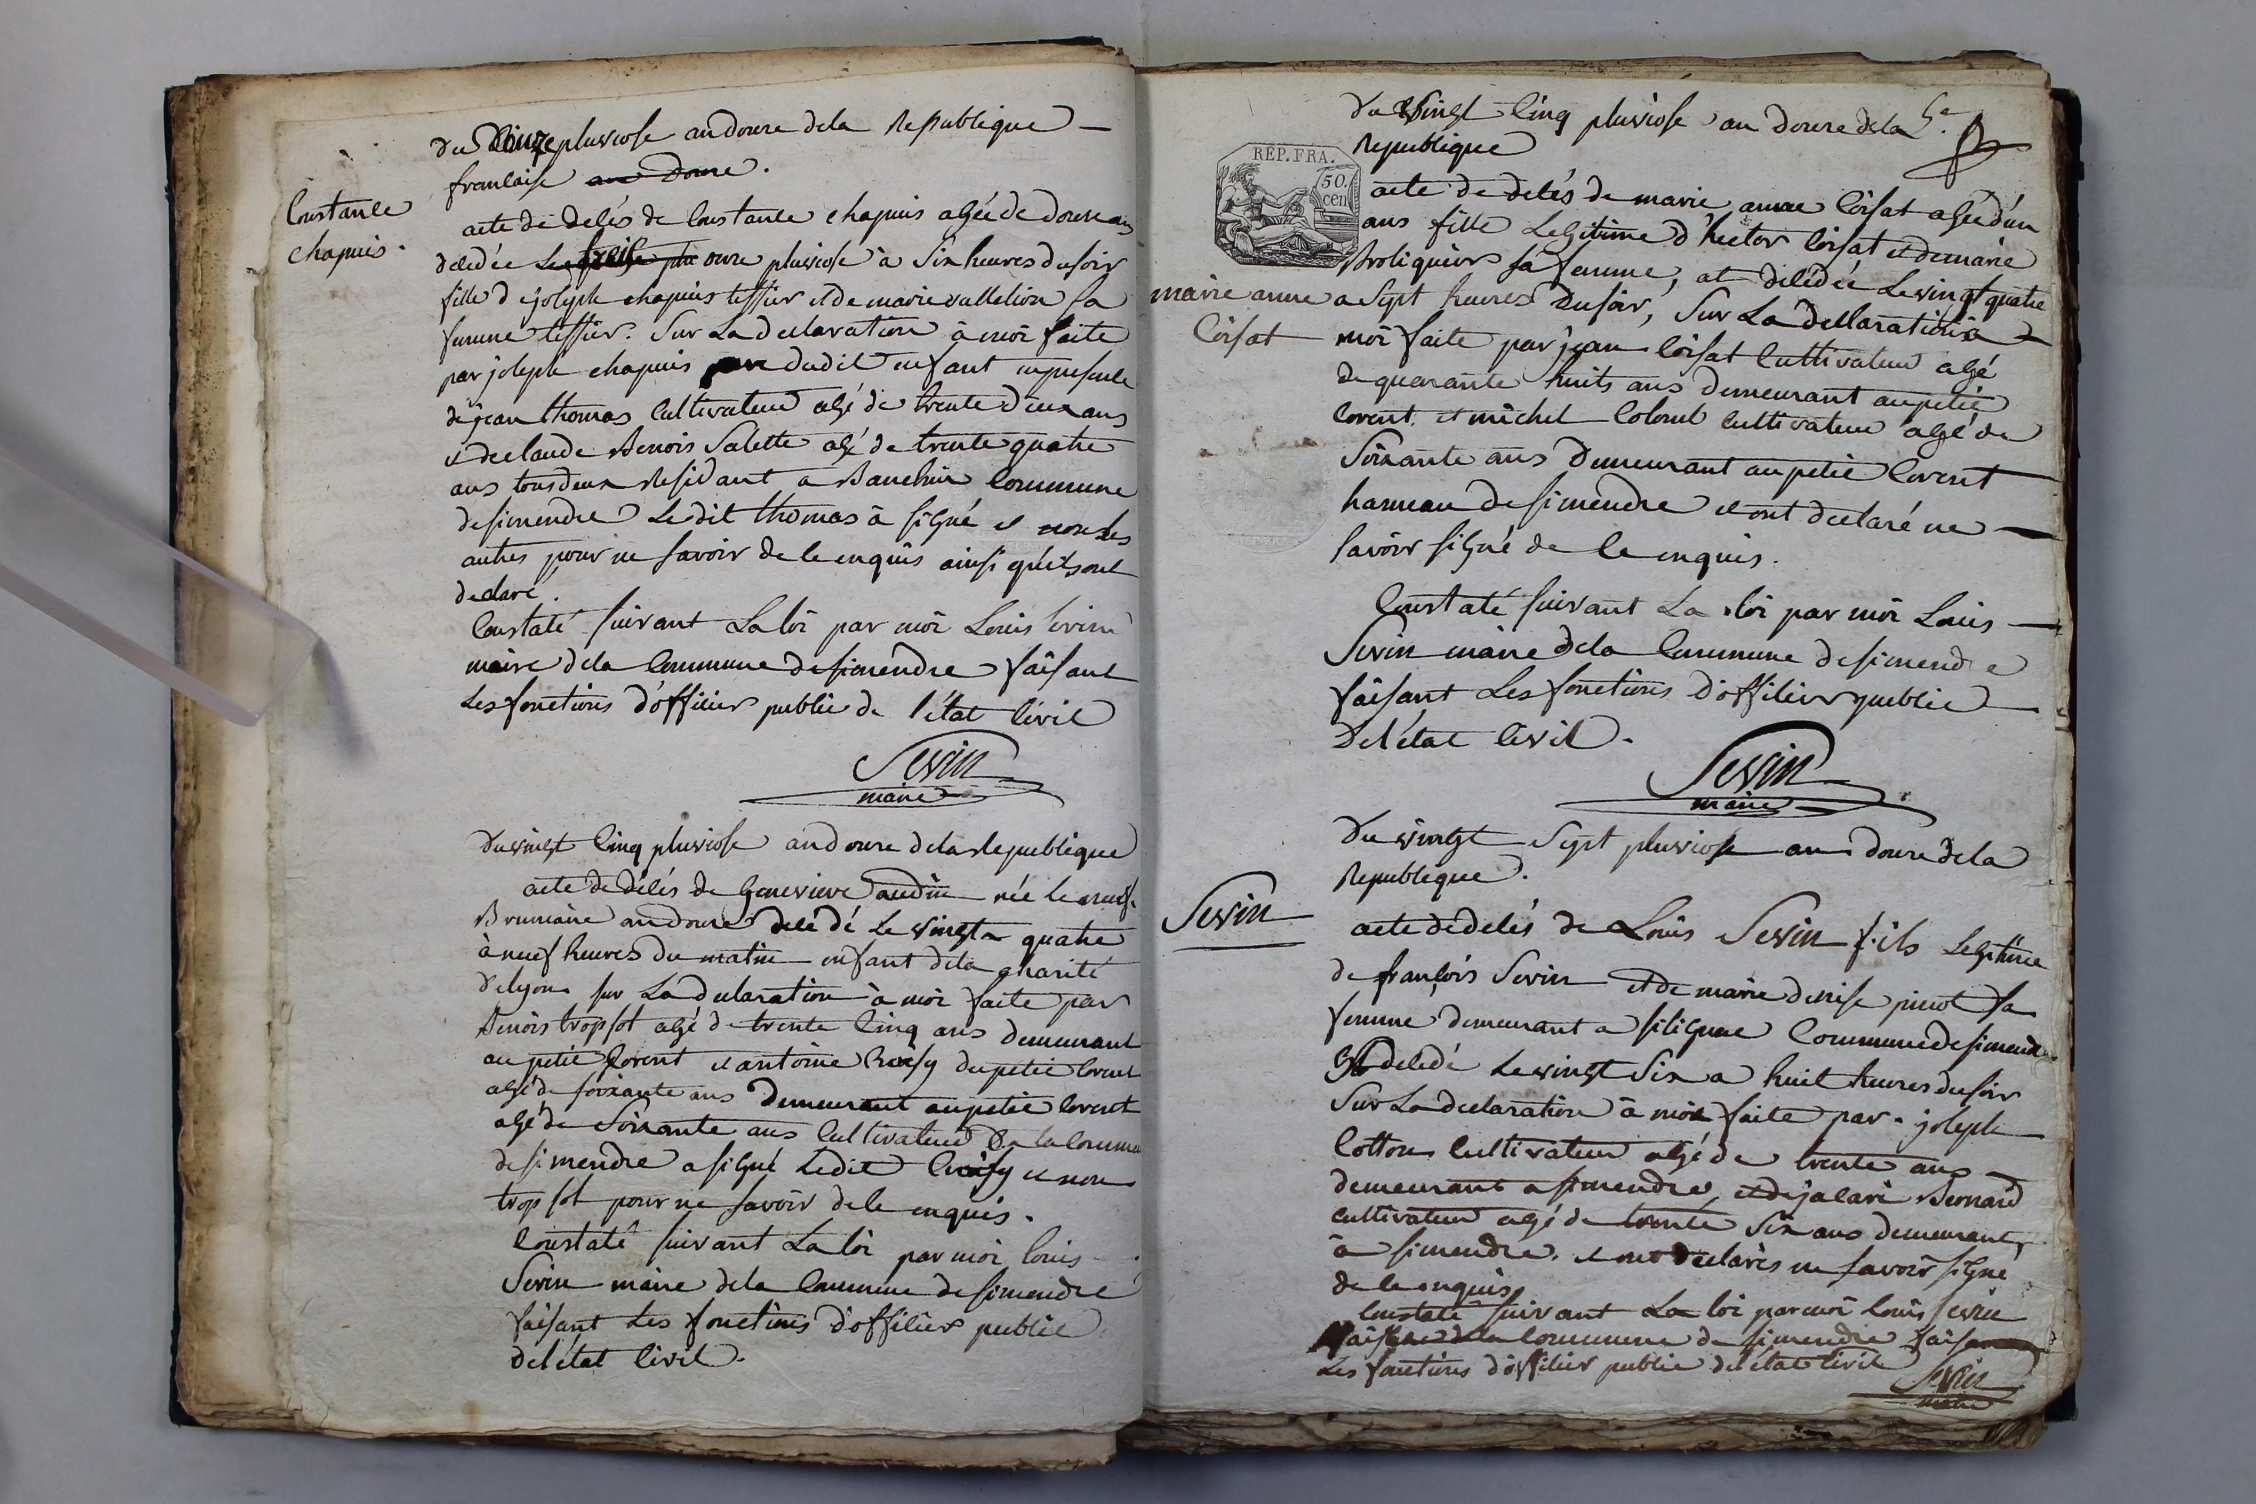 du Douze pluviose an douze dela Republique
francaise an Douze.
Constance
chapuis.
acte de delés de Constance chapuis agée de douze ans
delédée Le treize plu onze pluviose à Six heures du soir
fille d joseph chapuis tissier et de marie vallelion sa
femme tissier. Sur La declaration à moi faite
par joseph chapuis pere dudit enfant en presence
de jean thomas Cultivateur agé de trente deux ans
et de claude Benois Salette agé de trente quatre
ans tous deux Residant a Banchin Commune
de simendre Le dit thomas à signé et non les
autres pour ne savoir de le enquis ainsi qu'ils ont
declaré.
Constaté suivant La loi par moi Louis Sevin
maire dela Commune de simendre faisant
Les fonctions d'officier public de l'état Civil
Sevin
maire
du vingt Cinq pluviose an douze dela Republique
acte de délés de Genevieve audin née le neuf
Brumaire an douze delédé Le vingt quatre
à neuf heures du matin enfant dela charité
de lyon sur La declaration à moi faite par
Benois tropsot agé de trente Cinq ans demeurant
au petit Corent et antoine du petit Corent
agé de soixante ans Demeurant au petit Corent
agé de Soixante ans Cultivateur De la Commune
de simendre a signé Ledit et non
tropsot pour ne savoir de le enquis.
Constaté suivant La loi par moi louis
Sevin maire dela Commune de simendre
faisant Les fonctions d'officier public
del état Civil.
du vingt Cinq pluviose an douze dela
Republique
REP. FRA.
50.
cen
marie anne
Coisat
acte de delés de marie anne Coisat agé d'un
ans fille Legitime d'hector Coisat et de marie
Broliquier sa femme, at delédée Le vingt quatre
a Sept heures Du soir, Sur La declaration à
moi faite par jean Coisat Cultivateur agé
de quarante huits ans Demeurant au petit
Corent et michel Colomb Cultivateur agé de
Soixante ans Demeurant au petit Corent
hameau de simendre et ont declaré ne
savoir signé de le enquis.
Constaté suivant La loi par moi Louis
Sevin maire dela Commune de simendre
faisant Les fonctions D'officier public
Del état Civil.
Sevin
maire
Du vingt Sept pluviose an Douze dela
Republique.
Sevin
acte de delés de Louis Sevin fils Legitime
de françois Sevin et de marie denise picot sa
femme demeurant a silignae Commune de simendre
Et delédé Le vingt Six a huit heures du soir
Sur La declaration à moi faite par joseph
Cotton Cultivateur agé de trente ans
demeurant a simendre, et de Bernard
cultivateur agé de trente Six ans demeurant
à simendre. et ont declarés ne savoir signé
de le enquis
Constaté suivant La loi par moi louis Sevin
maire dela Commune de simendre faisant
Les fonctions d'officier public del état Civil
Sevin
maire